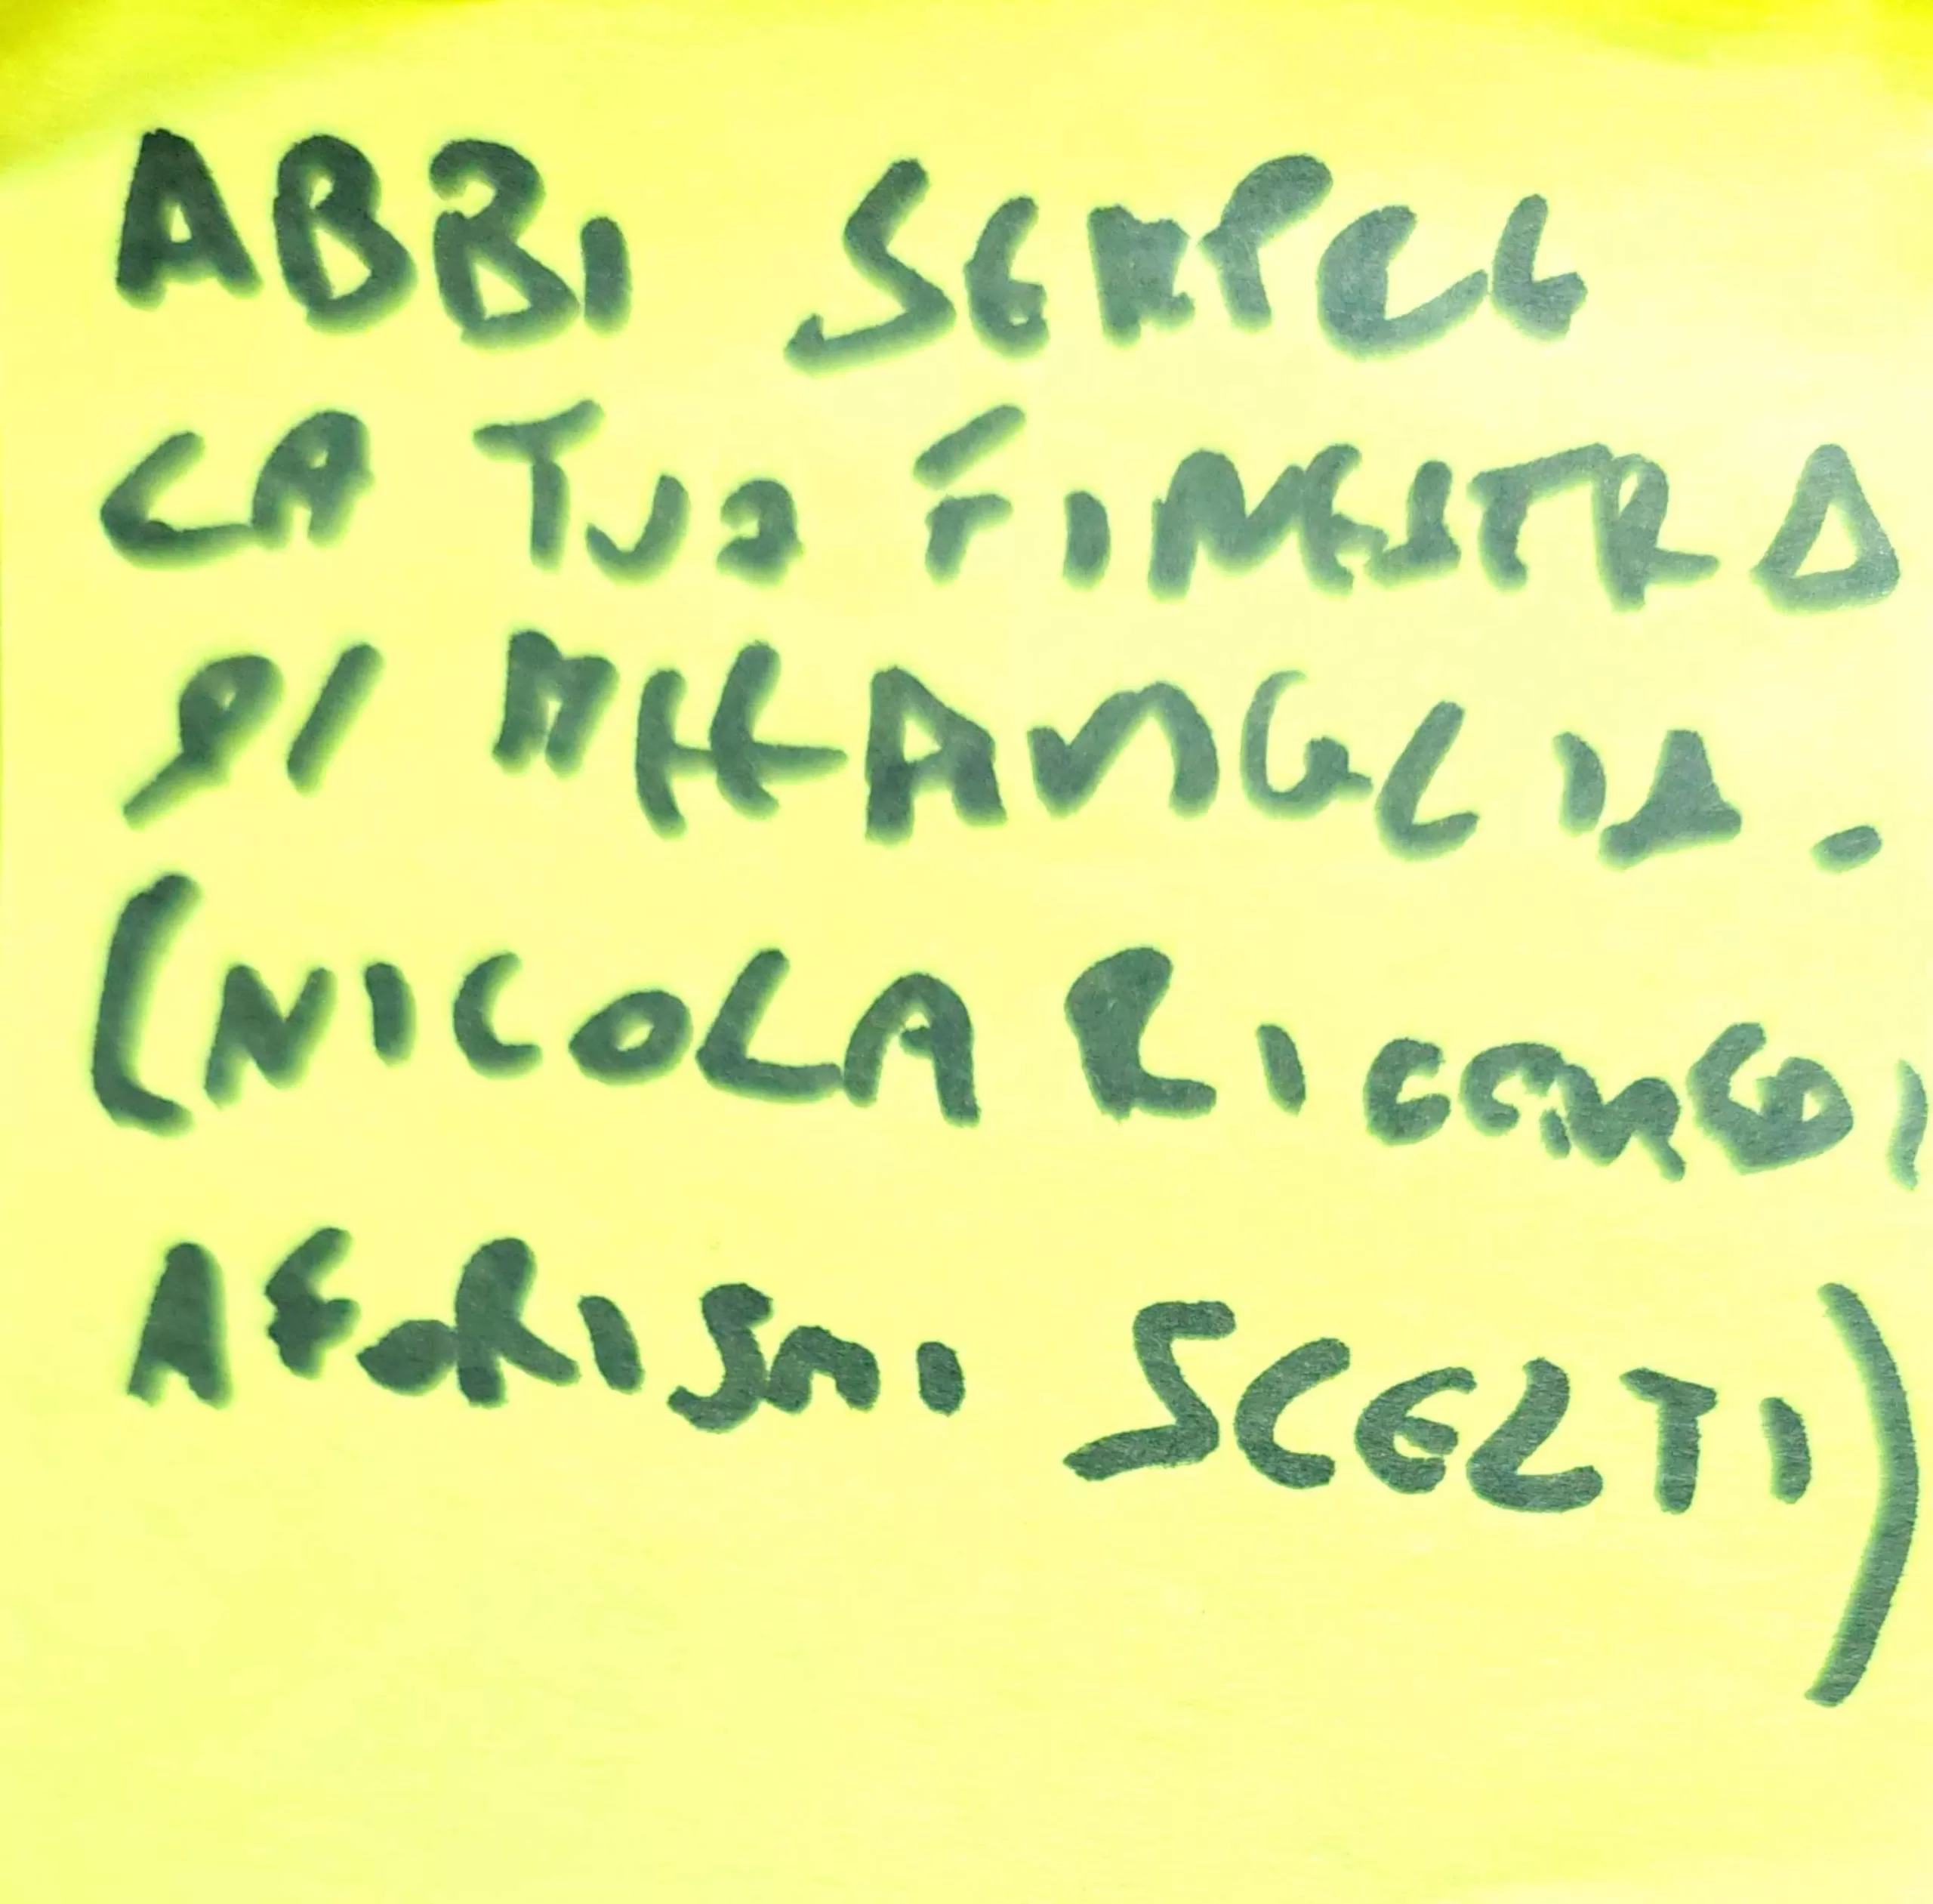 ABBI SEMPRE
LA TUA FINESTRA
DI MERAVIGLIA.
(NICOLA
AFORISMI SCELTI)